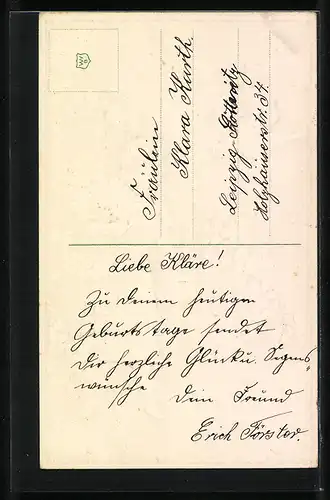 Fräulein
Klara Kurth.
Leipzig-Stötteritz
Holzhäuserstr. 34.
Liebe Kläre!
Zu deinem heutigen
Geburtstage sendet
Dir herzliche Glücku. Segens„
wünsche Dein Freund
Erich Förster.